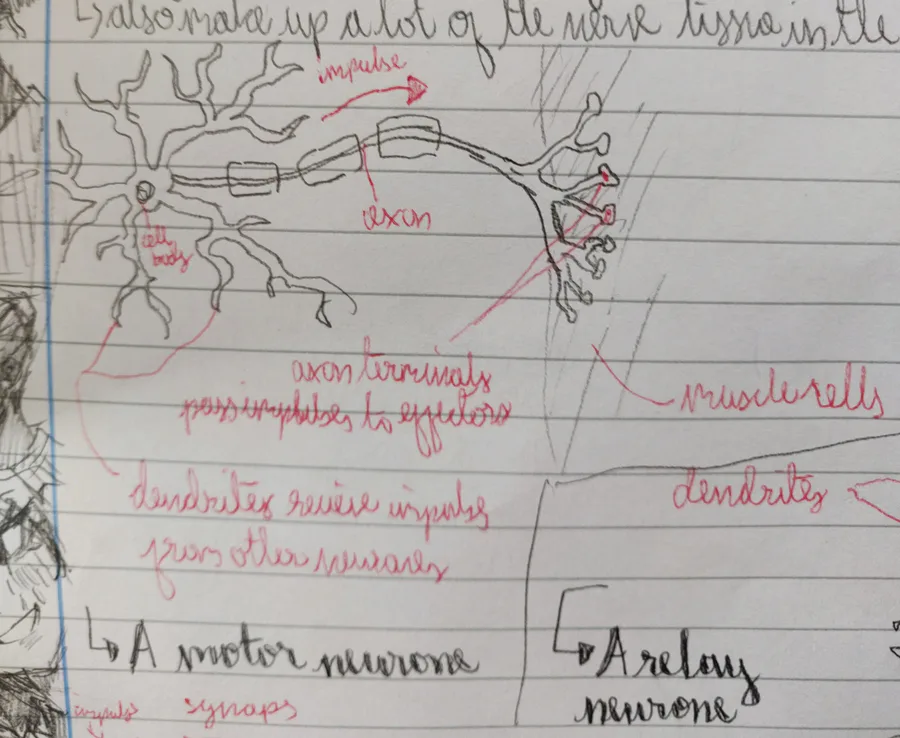 ↳also make up a lot of the nerve tissue in the
impulse
axon
cell
body
axon terminals
pass impulses to effectors
muscle cells
dendrites
dendrites recieve impulse
from other neurones
↳ A motor neurone
↳ A relay
neurone
impuls
synaps